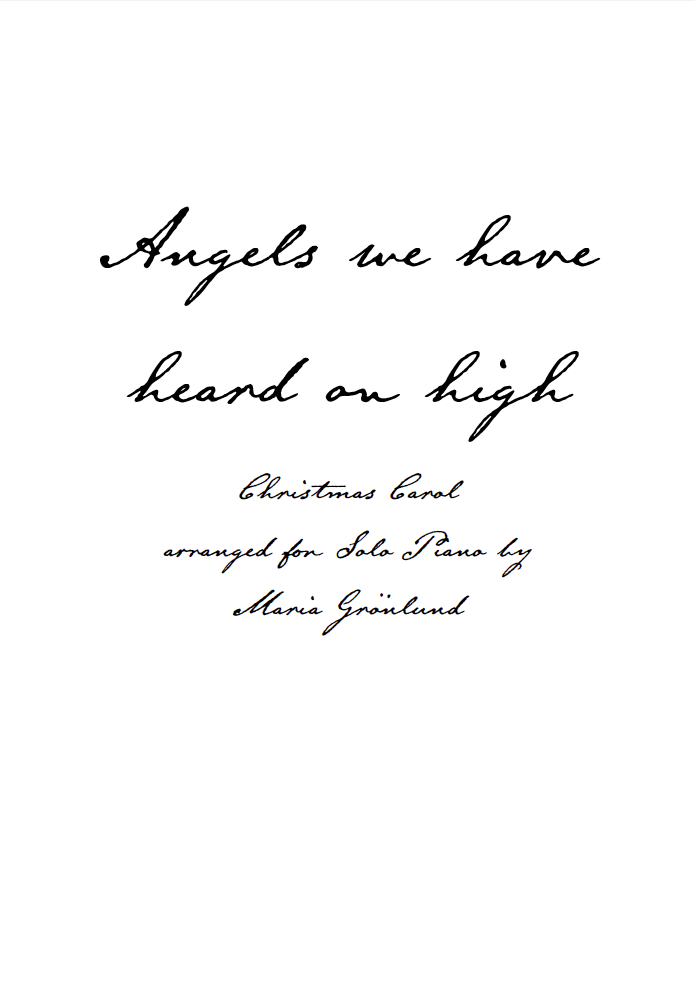 Angels we have
heard on high
Christmas Carol
arranged for Solo Piano by
Maria Grönlund